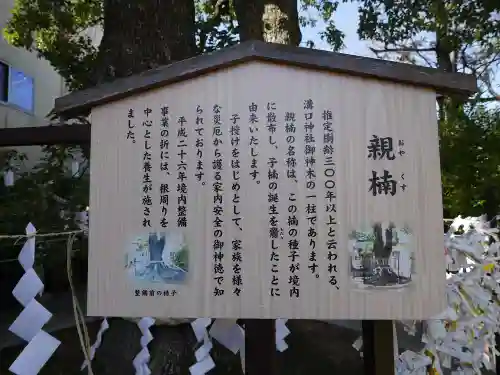 親楠
おや くす
推定樹齢三〇〇年以上と云われる、
溝口神社御神木の一柱であります。
親楠の名称は、この楠の種子が境内
に散布し、子楠の誕生を齎したことに
もたら
由来いたします。
子授けをはじめとして、家族を様々
な災厄から護る家内安全の御神徳で知
られております。
平成二十六年境内整備
事業の折には、根周りを
中心とした養生が施され
ました。
整備前の種子